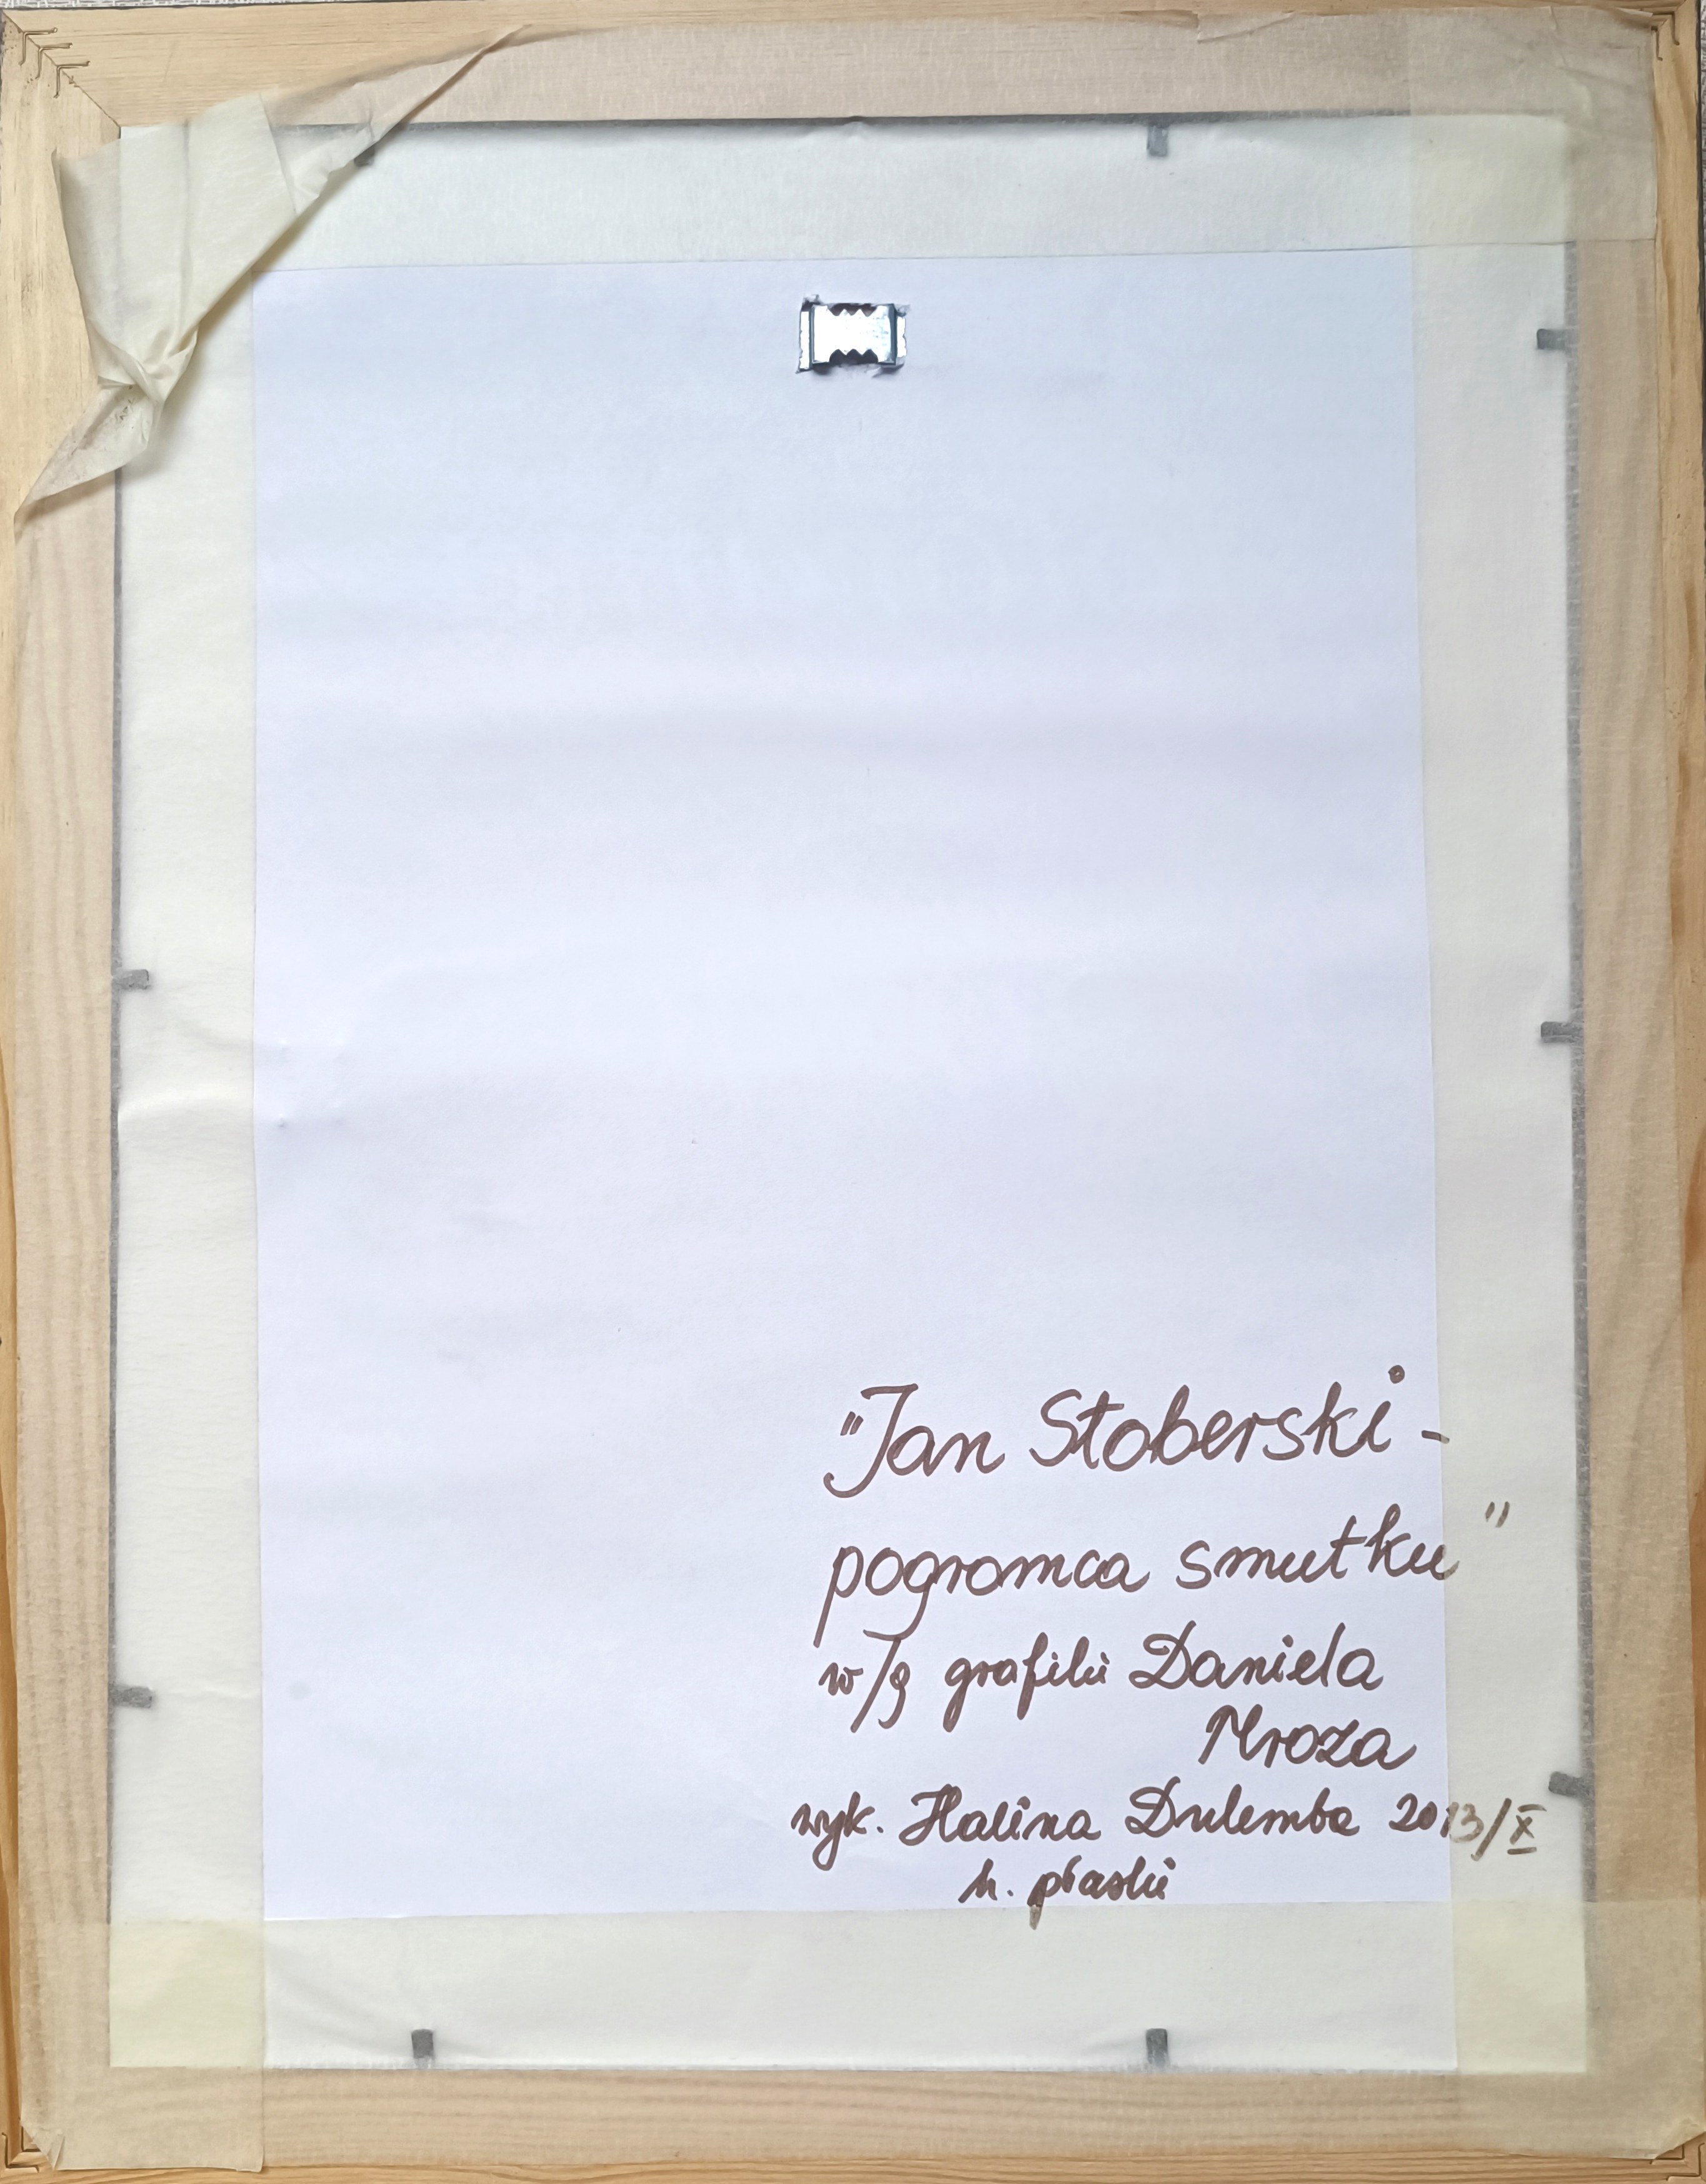 "Jan Stoberski -
pogromca smutku"
w/g grafiki Daniela
Mroza
wyk. Halina Dulemba 2013/X
h. płaski